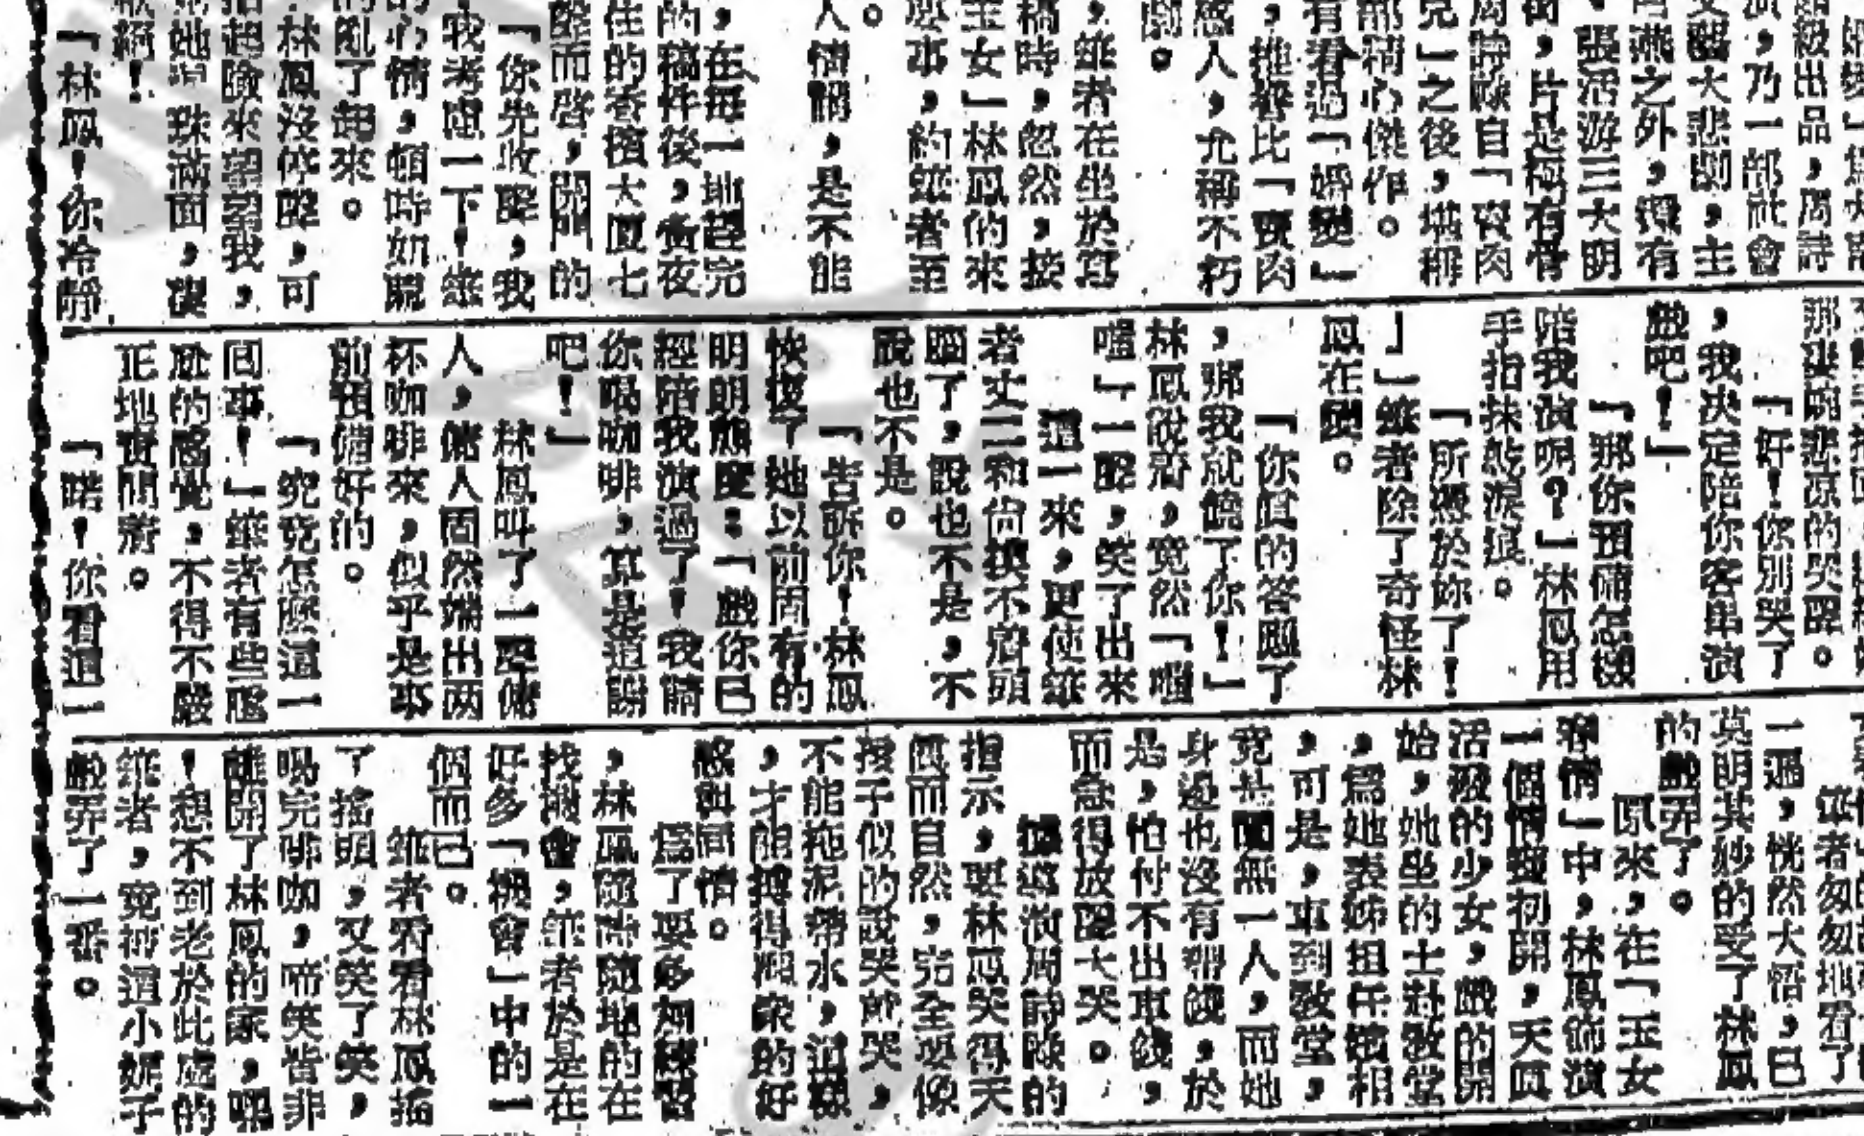 婚變」爲大南
級出品，周詩
演，乃一部社會
大悲劇，主
燕之外，還有
、張活游三大明
，片是極有骨
周詩祿自「夜肉
」之後，堪稱
部精心傑作。
有看過「婚變」
，推譽比「夜肉
感人，尤稱不朽
劇。
，筆者在坐於寫
稿時，忽然，按
玉女」林鳳的來
，約筆者至
。
人情體，是不能
，在每一地趕完
的稿件後，黃夜
住的香檳大廈七
而啓，開門的
「你先收聲，我
我考慮一下！筆
的心情，頓時如
的亂了起來。
林鳳沒停聲，可
起臉來望望我，
她淚珠滿面，淒
絕！
「林鳳！你冷靜
那淒惋悲凉的哭聲。
「好！你別哭了
，我决定陪你客串演
戲吧！」
「那你預備怎樣
陪我演呢？」林鳳用
手指抹乾淚痕。
「所憑於妳了！
」筆者除了奇怪林
鳳在。
「你真的答應了
，那我就饒了你！」
林鳳說着，竟然「噹
噹」一聲，笑了出來
這一來，更使筆
者丈二和尙摸不着頭
腦了，說也不是，不
說也不是。
「告訴你！林鳳
恢復了她以前固有的
明朗態度：「戲你已
經陪我演過了！我請
你喝咖啡，算是道謝
吧！」
林鳳叫了一聲傭
人，傭人固然端出兩
杯咖啡來，似乎是事
前預備好的。
「究竟怎麽這一
回事！」筆者有些尷
尬的感覺，不得不嚴
正地實問着。
「喏！你看這一
筆者匆匆地看了
一過，恍然大悟，已
莫明其妙的受了林鳳
的戲弄了。
原來，在「玉女
春情」中，林鳳飾演
一個情竇初開，天眞
活潑的少女，戲的開
始，她坐的士赴敎堂
，爲她表姊担任儐相
，可是，車到敎堂，
竟甚闃無一人，而她
身邊也沒有帶錢，於
是，怕付不出車錢，
而急得放聲大哭。
據導演周詩祿的
指示，要林鳳哭得天
眞而自然，完全要像
孩子似的說哭就哭，
不能拖泥帶水，這樣
，才能搏得觀衆的好
感與同情。
爲了要多加練習
，林鳳隨時隨地的在
找機會，筆者於是在
好多「機會」中的一
個而已。
筆者看看林鳳搖
了搖頭，又笑了笑，
喝完啡咖，啼笑皆非
離開了林鳳的家，嘿
！想不到老於此處的
筆者，竟被這小妮子
戲弄了一番。